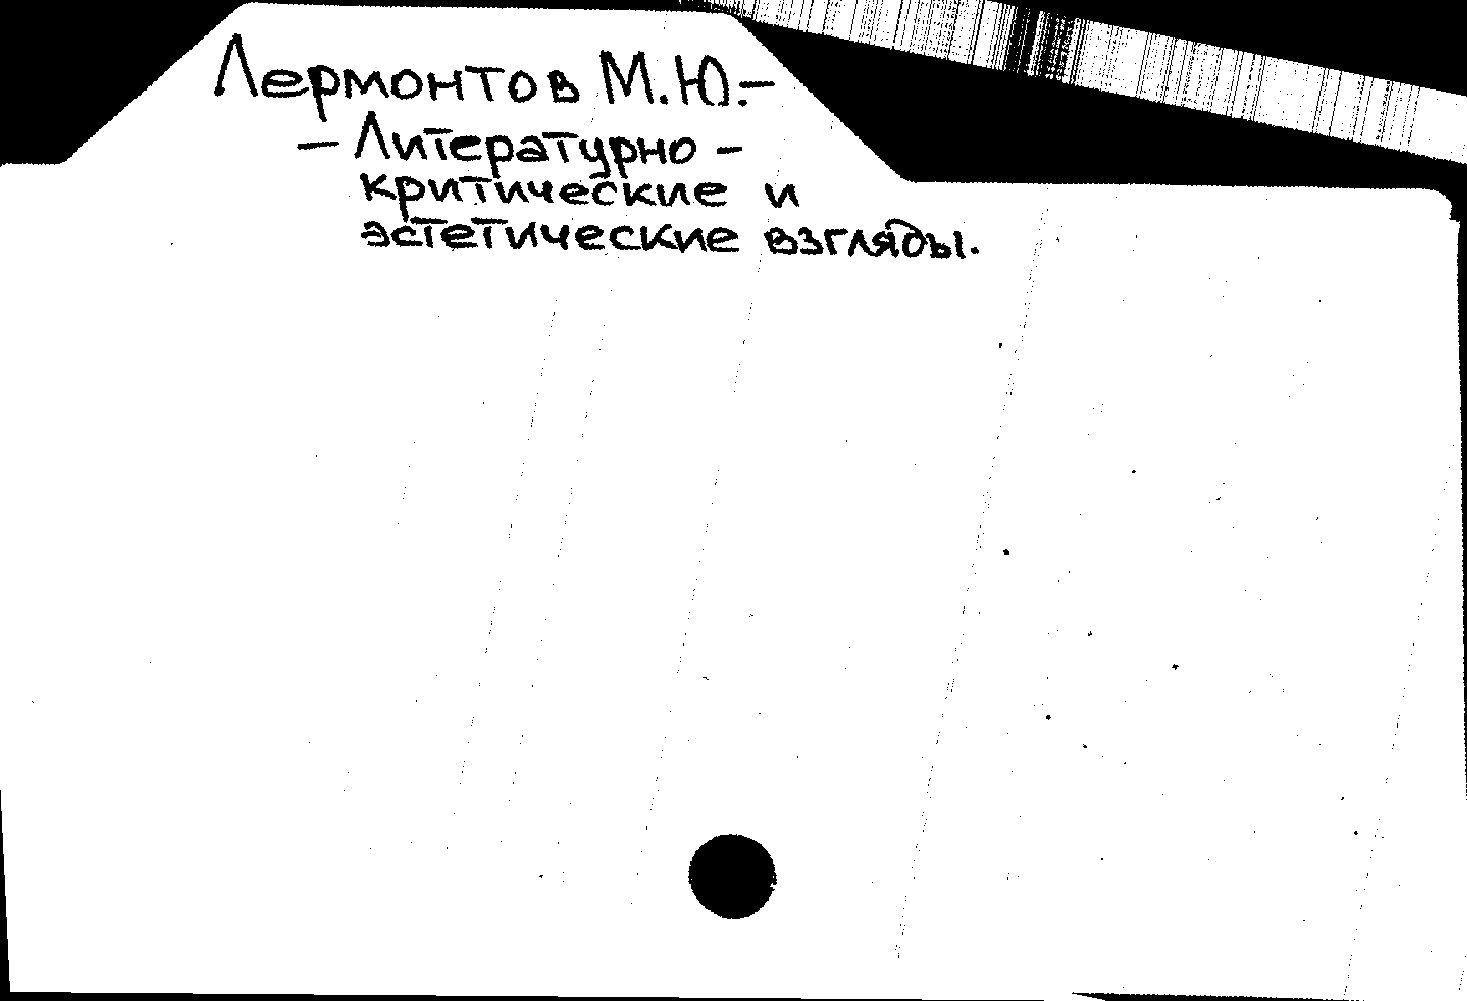 Лермонтов М.Ю.–
– Литературно –
критические и
эстетические взгляды.